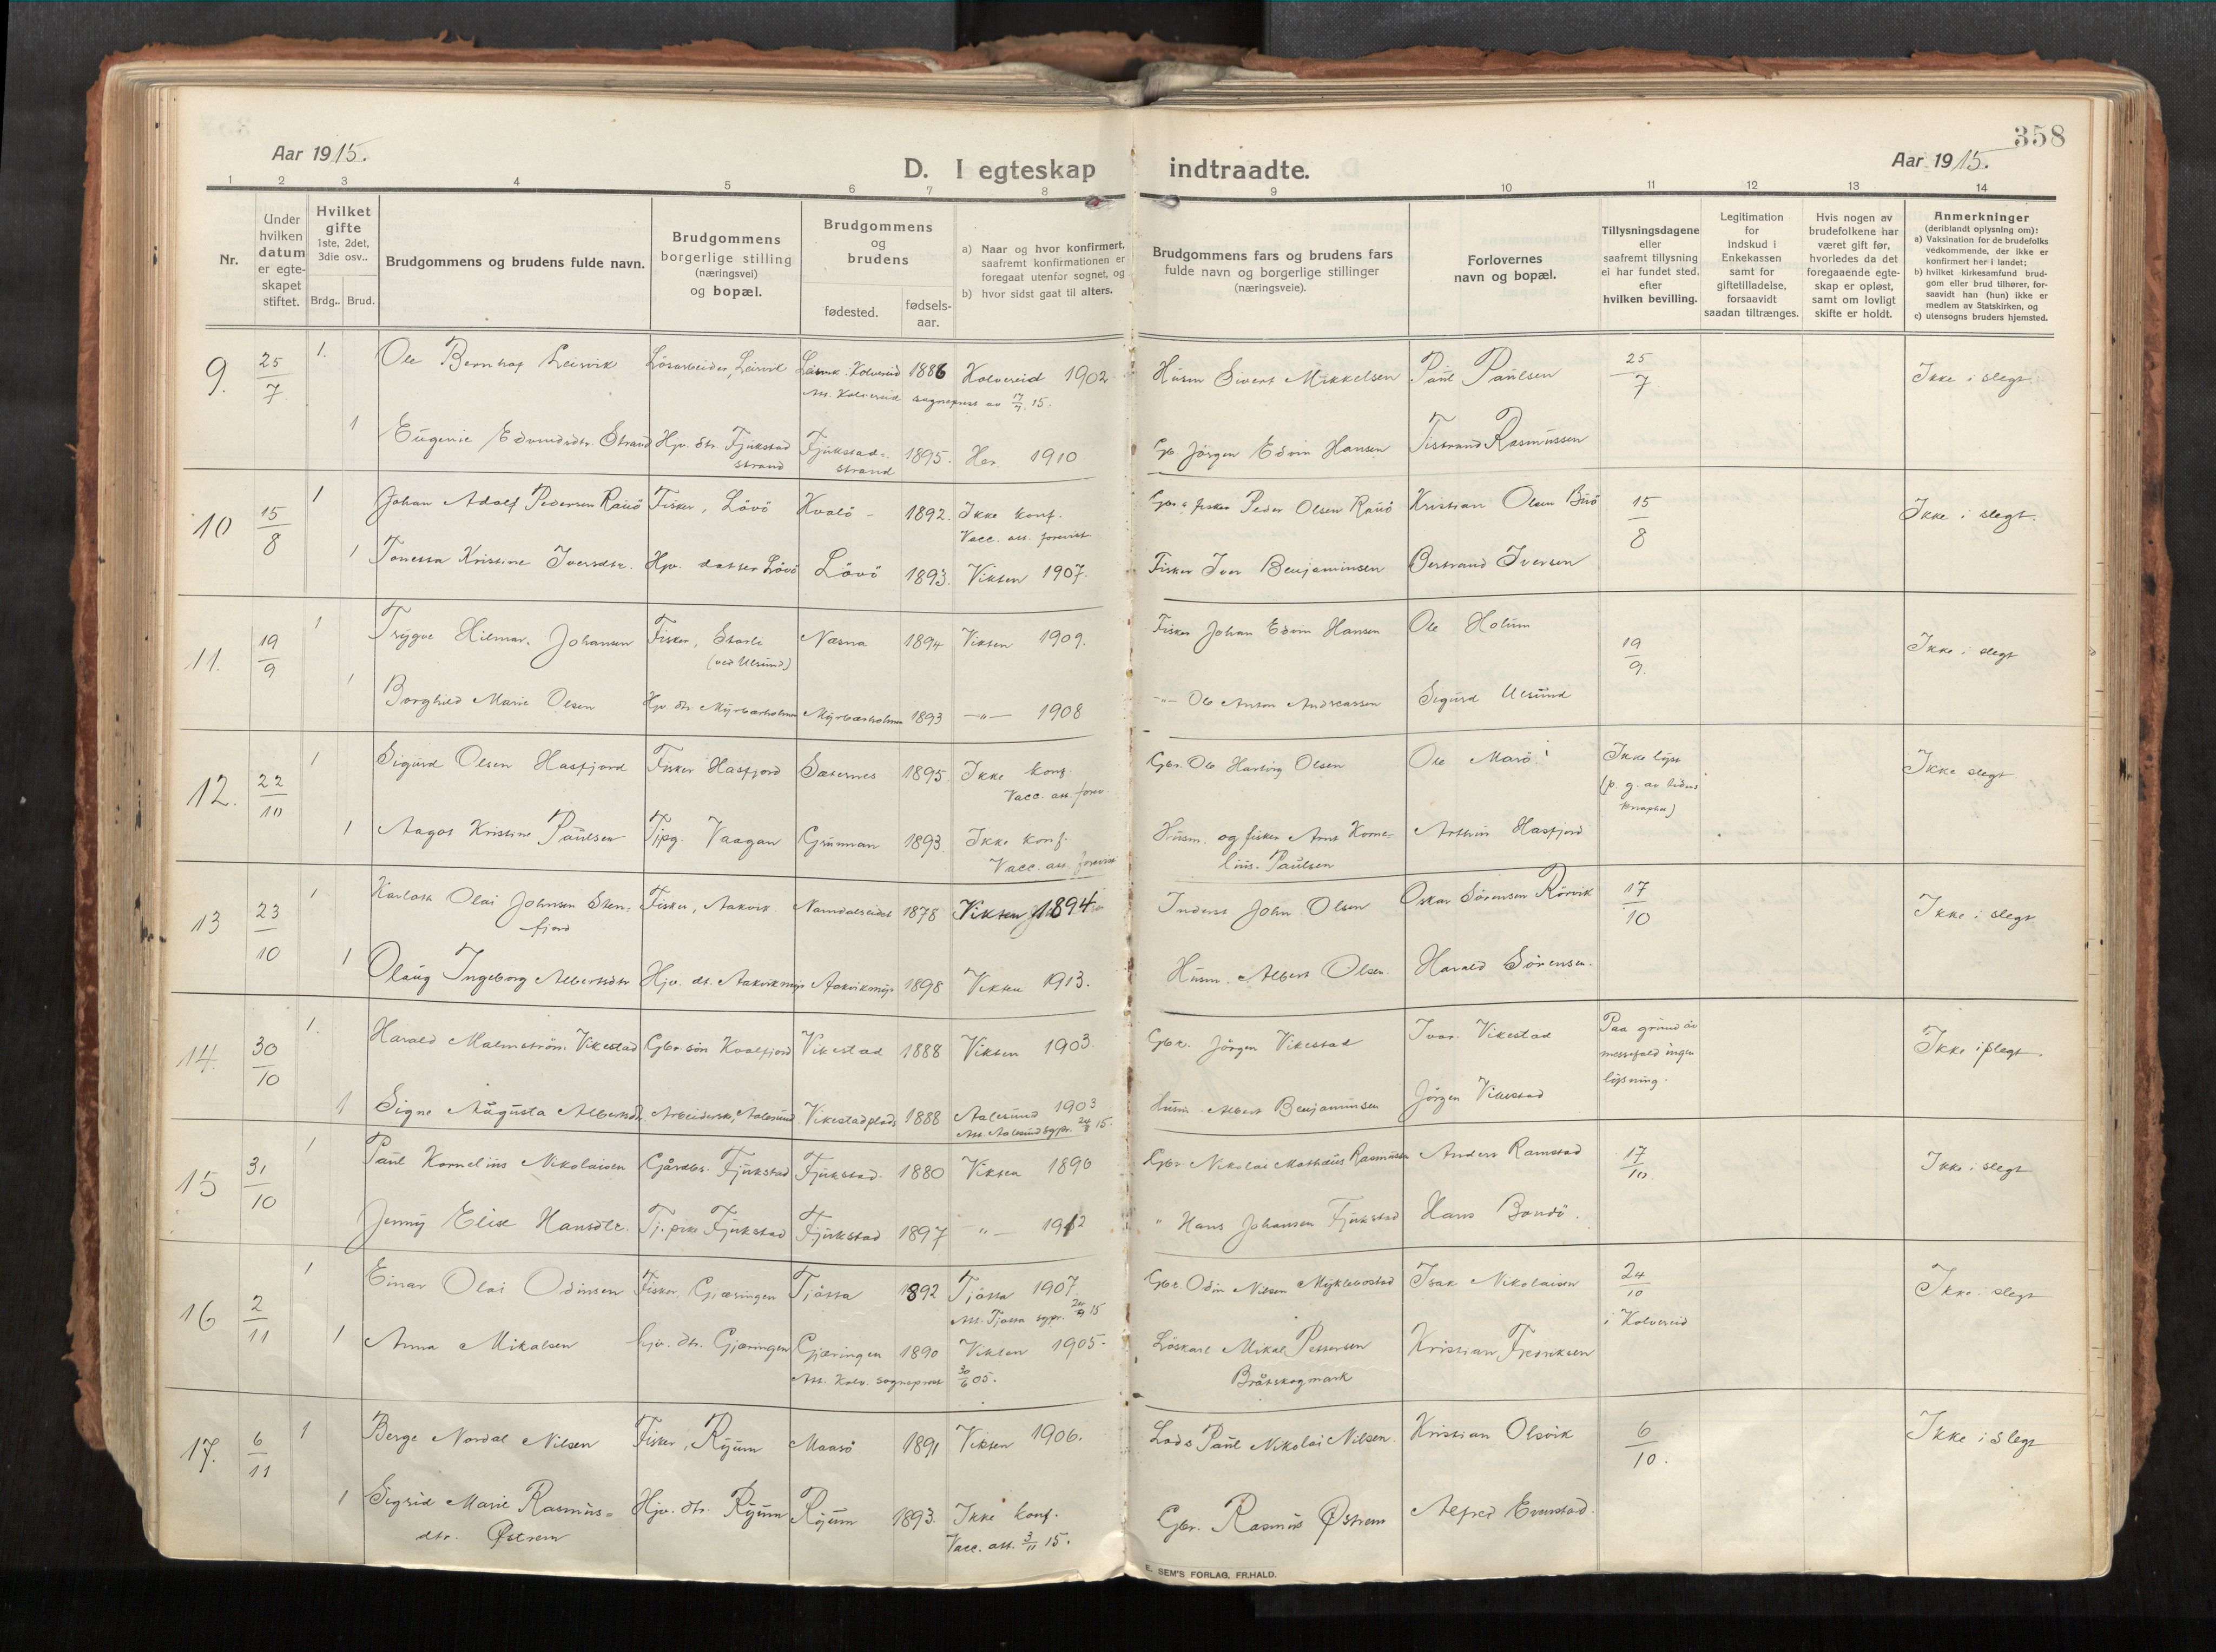 358
Aar 1915.
D. I egteskap indtraadte.
Aar 1915.
1 2 3 4 5 6 7 8 9 10 11 12 13 14
Nr.
Under hvilken datum er egte-skapet stiftet.
Hvilket gifte 1ste, 2det, 3die osv..
Brdg.. Brud.
Brudgommens og brudens fulde navn.
Brudgommens borgerlige stilling (næringsvei) og bopæl.
Brudgommens og brudens
fødested.
fødsels-aar.
a) Naar og hvor konfirmert, saafremt konfirmationen er foregaat utenfor sognet, og
b) hvor sidst gaat til alters.
Brudgommens fars og brudens fars fulde navn og borgerlige stillinger (næringsveie).
Forlovernes navn og bopæl.
Tillysningsdagene eller saafremt tillysning ei har fundet sted. efter hvilken bevilling.
Legitimation for indskud i Enkekassen samt for giftetilladelse, forsaavidt saadan tiltrænges.
Hvis nogen av brudefolkene har været gift før, hvorledes da det foregaaende egte-skap er opløst, samt om lovligt skifte er holdt.
Anmerkninger
(deriblandt oplysning om):
a) Vaksination for de brudefolks vedkommende, der ikke er konfirmert her i landet;
b) hvilket kirkesamfund brud-gom eller brud tilhører, for-saavidt han (hun) ikke er medlem av Statskirken, og
c) utensogns bruders hjemsted.
9. 25/7. 1. Ole Bernhof Leirvik Løsarbeider, Leirvik Leirvik. Kolvereid 1886 Kolvereid 1902 Husm Sivert Mikkelsen Paul Paulsen 25/7 Ikke i slegt.
Att. Kolvereid sogneprest av 17/7 15.
1 Eugenie Edvindsdtr. Strand Hjv. dtr. Fjukstad strand Fjukstad-strand 1895. Her. 1910 Gb. Jörgen Edvin Hansen Tistrand Rasmussen
10 15/8 1 Johan Adolf Pedersen Rauö Fisker, Lövö Kvalö 1892. Ikke konf. Gbr. & fisker Peder Olsen Rauö Kristian Olsen Buö 15/8 Ikke i slegt.
Vacc. att. forevist
1 Jonessa Kristine Iversdtr. Hjv. datter Lövö Lövö 1893. Vikten 1907. Fisker Iver Benjaminsen Bertrand Iversen
11. 19/9 1 Trygve Hilmar Johansen Fisker, Starli Næsna 1894 Vikten 1909. Fisker Johan Edvin Hansen Ole Holum 19/9. Ikke i slegt
(ved Ulsund)
1 Borghild Marie Olsen Hjv. dtr. Myrværholmen Myrværholmen 1893 —"— 1908 —"— Ole Anton Andreassen Sigurd Ulsund
12. 22/10 1 Sigurd Olsen Hasfjord Fisker Hasfjord Sæternes 1895. Ikke konf. Gbr. Ole Hartvig Olsen Ole Marö Ikke lyst Ikke slegt
Vacc. att. forev. (p. g. av tidens knaphet)
1 Aagot Kristine Paulsen Tjpg. Vaagan Grunnan 1893. Ikke konf. Husm. og fisker Arnt Korne- Arthur Hasfjord
Vacc. att. forevist lius. Paulsen
13 23/10 1 Karloth Olai Johnsen Sten- Fisker, Aakvik. Namdalseidet 1878 Vikten 1894 Inderst John Olsen Oskar Sörensen Rörvik 17/10 Ikke i slegt
fjord
1 Olaug Ingeborg Albertsdtr Hjv. dt. Aakvikmyr Aakvikmyr 1898 Vikten 1913. Husm. Albert Olsen. Harald Sörensen.
14. 30/10 1. Harald Malmström Vikestad Gbr. sön Kvalfjord Vikestad 1888 Vikten 1903. Gbr. Jörgen Vikestad Ivar. Vikestad Paa grund av Ikke i slegt.
messefald ingen
lysning.
1 Signe Augusta Albertsdtr. Arbeiderske, Aalesund. Vikestadplads 1888 Aalesund 1903 Husm. Albert Benjaminsen Jörgen Vikestad
Att. Aalesund sgpr. 15.
15 31/10 1 Paul Kornelius Nikolaisen Gårdbr. Fjukstad Fjukstad. 1880 Vikten 1896 Gbr. Nikolai Mathæus Rasmussen Anders Ramstad 17/10. Ikke i slegt
Jenny Elise Hansdtr. Tj. pike Fjukstad Fjukstad 1897 —"— 1912 " Hans Johansen Fjukstad Hans Bondö.
16 2/11 1 Einar Olai Odinsen Fisker, Gjæringen Tjötta 1892 Tjötta 1907 Gbr. Odin Nilsen Myklebostad Isak Nikolaisen 24/10 Ikke i slegt
Att. Tjötta sgpr. 15 i Kolvereid
1 Anna Mikalsen hjv. dtr. Gjæringen Gjæringen 1890 Vikten 1905. Löskarl Mikal Pettersen Kristian Fredriksen
Att. Kolv. sogneprest 30/6 05. Bråtskogmark
17. 6/11 1 Berge Nordal Nilsen Fisker, Ryum Maasö 1891 Vikten 1906. Lods Paul Nikolai Nilsen. Kristian Olsvik 6/10. Ikke i slegt
1 Sigrid Marie Rasmus- Hjv. dtr. Ryum Ryum 1893. Ikke konf. Gbr. Rasmus Østrem Alfred Evenstad.
dtr. Østrem Vacc. att. 3/11 15.
E. SEM'S FORLAG, FR.HALD.